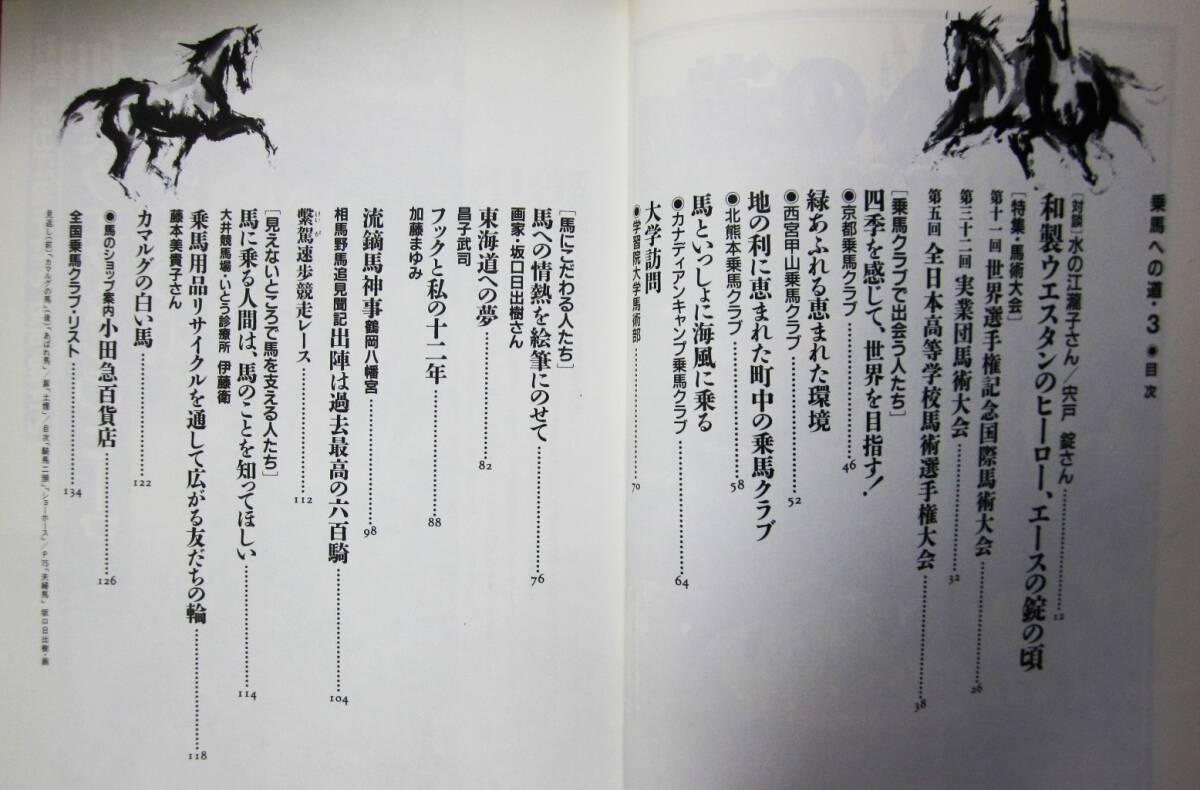 乗馬への道・3 ●目次
[対談] 水の江瀧子さん／宍戸 錠さん
和製ウエスタンのヒーロー、エースの錠の頃 12
[特集・馬術大会]
第十一回 世界選手権記念国際馬術大会 26
第三十二回 実業団馬術大会 32
第五回 全日本高等学校馬術選手権大会 38
[乗馬クラブで出会う人たち]
四季を感じて、世界を目指す!
●京都乗馬クラブ 46
緑あふれる恵まれた環境
●西宮甲山乗馬クラブ 52
地の利に恵まれた町中の乗馬クラブ
●北熊本乗馬クラブ 58
馬といっしょに海風に乗る
●カナディアンキャンプ乗馬クラブ 64
大学訪問
●学習院大学馬術部 70
[馬にこだわる人たち]
馬への情熱を絵筆にのせて 76
画家・坂口日出樹さん
東海道への夢 82
昌子武司
フックと私の十二年 88
加藤まゆみ
流鏑馬神事 鶴岡八幡宮 98
相馬野馬追見聞記 出陣は過去最高の六百騎 104
繫駕速歩競走レース 112
けいが
[見えないところで馬を支える人たち]
馬に乗る人間は、馬のことを知ってほしい 114
大井競馬場・いとう診療所 伊藤衛
乗馬用品リサイクルを通して広がる友だちの輪 118
藤本美貴子さん
カマルグの白い馬 122
●馬のショップ案内 小田急百貨店 126
全国乗馬クラブ・リスト 134
見返し（前）、「カマルグの馬」（後）、「あばれ馬」／扉、「土煙」／目次「騎馬二頭」、「ショーホース」／P75「夫婦馬」 坂口日出樹・画